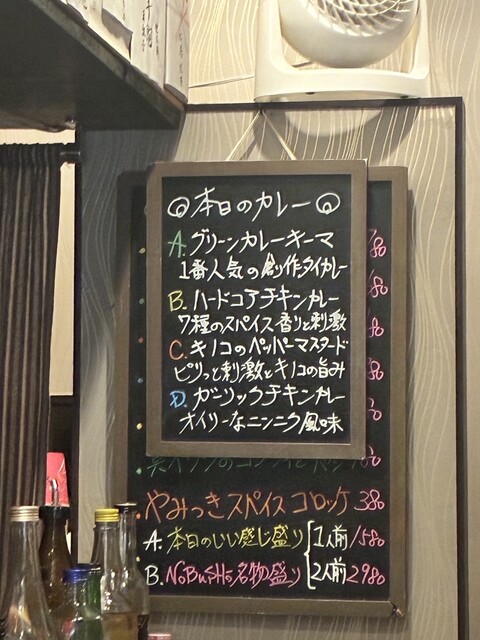 本日のカレー
A. グリーンカレーキーマ
1番人気の創作タイカレー
B. ハードコアチキンカレー
7種のスパイス香りと刺激
C. キノコのペッパーマスタード
ピリッと刺激とキノコの旨み
D. ガーリックチキンカレー
オイリーなニンニク風味
やみつきスパイスコロッケ 380
A. 本日のいい感じ盛り 1人前 1580
B. NOBUSHの名物盛り 2人前 2980